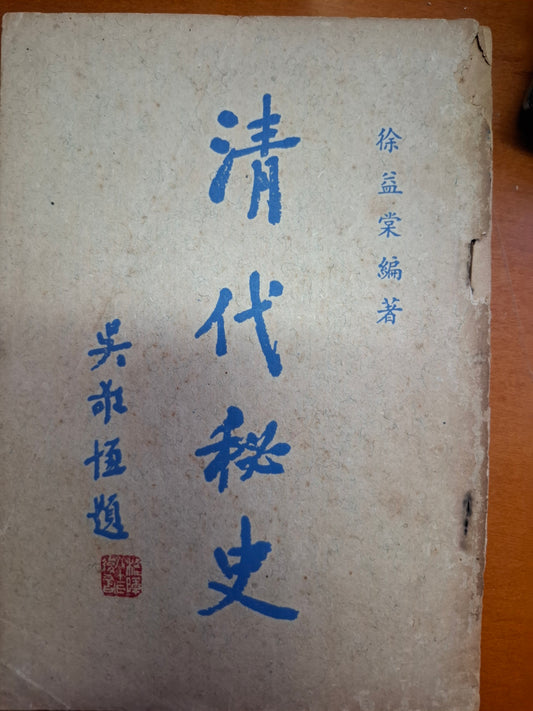 徐益棠編著
清代秘史
吳敬恆題